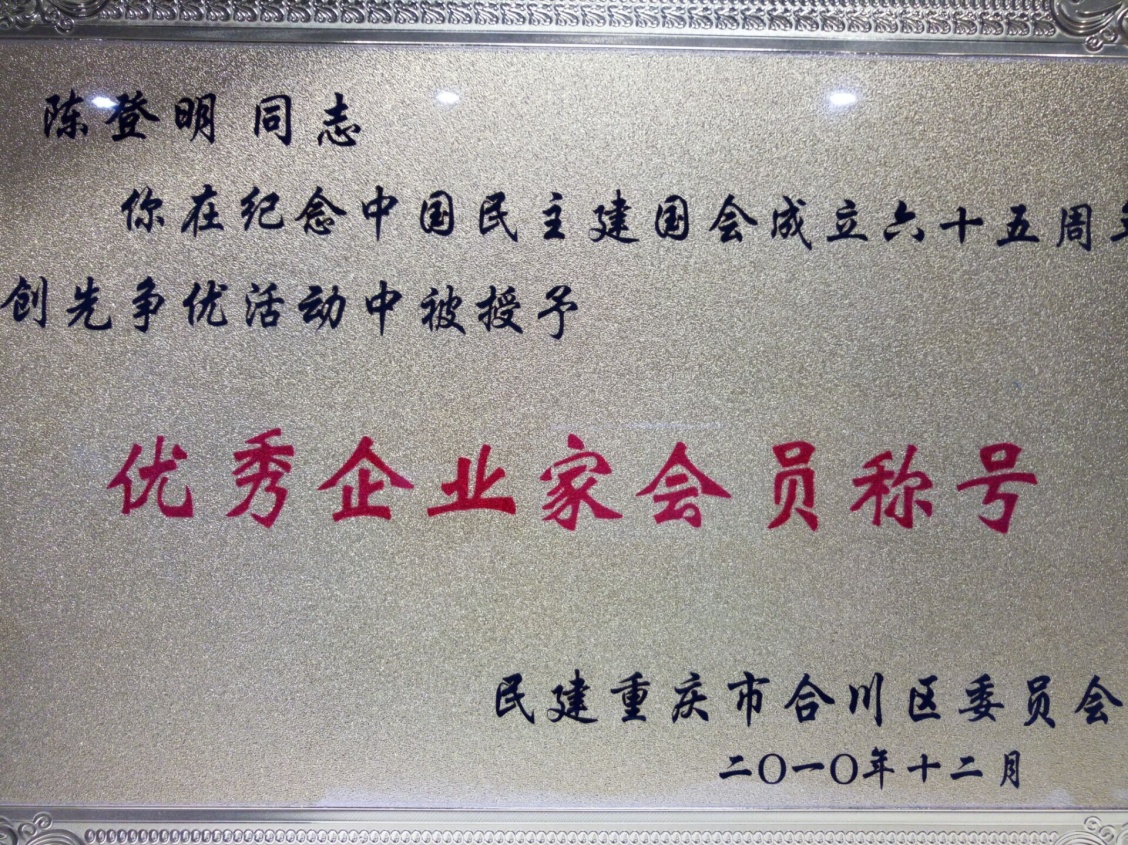 陈登明 同志
你在纪念中国民主建国会成立六十五周年
创先争优活动中被授予
优秀企业家会员称号
民建重庆市合川区委员会
二〇一〇年十二月